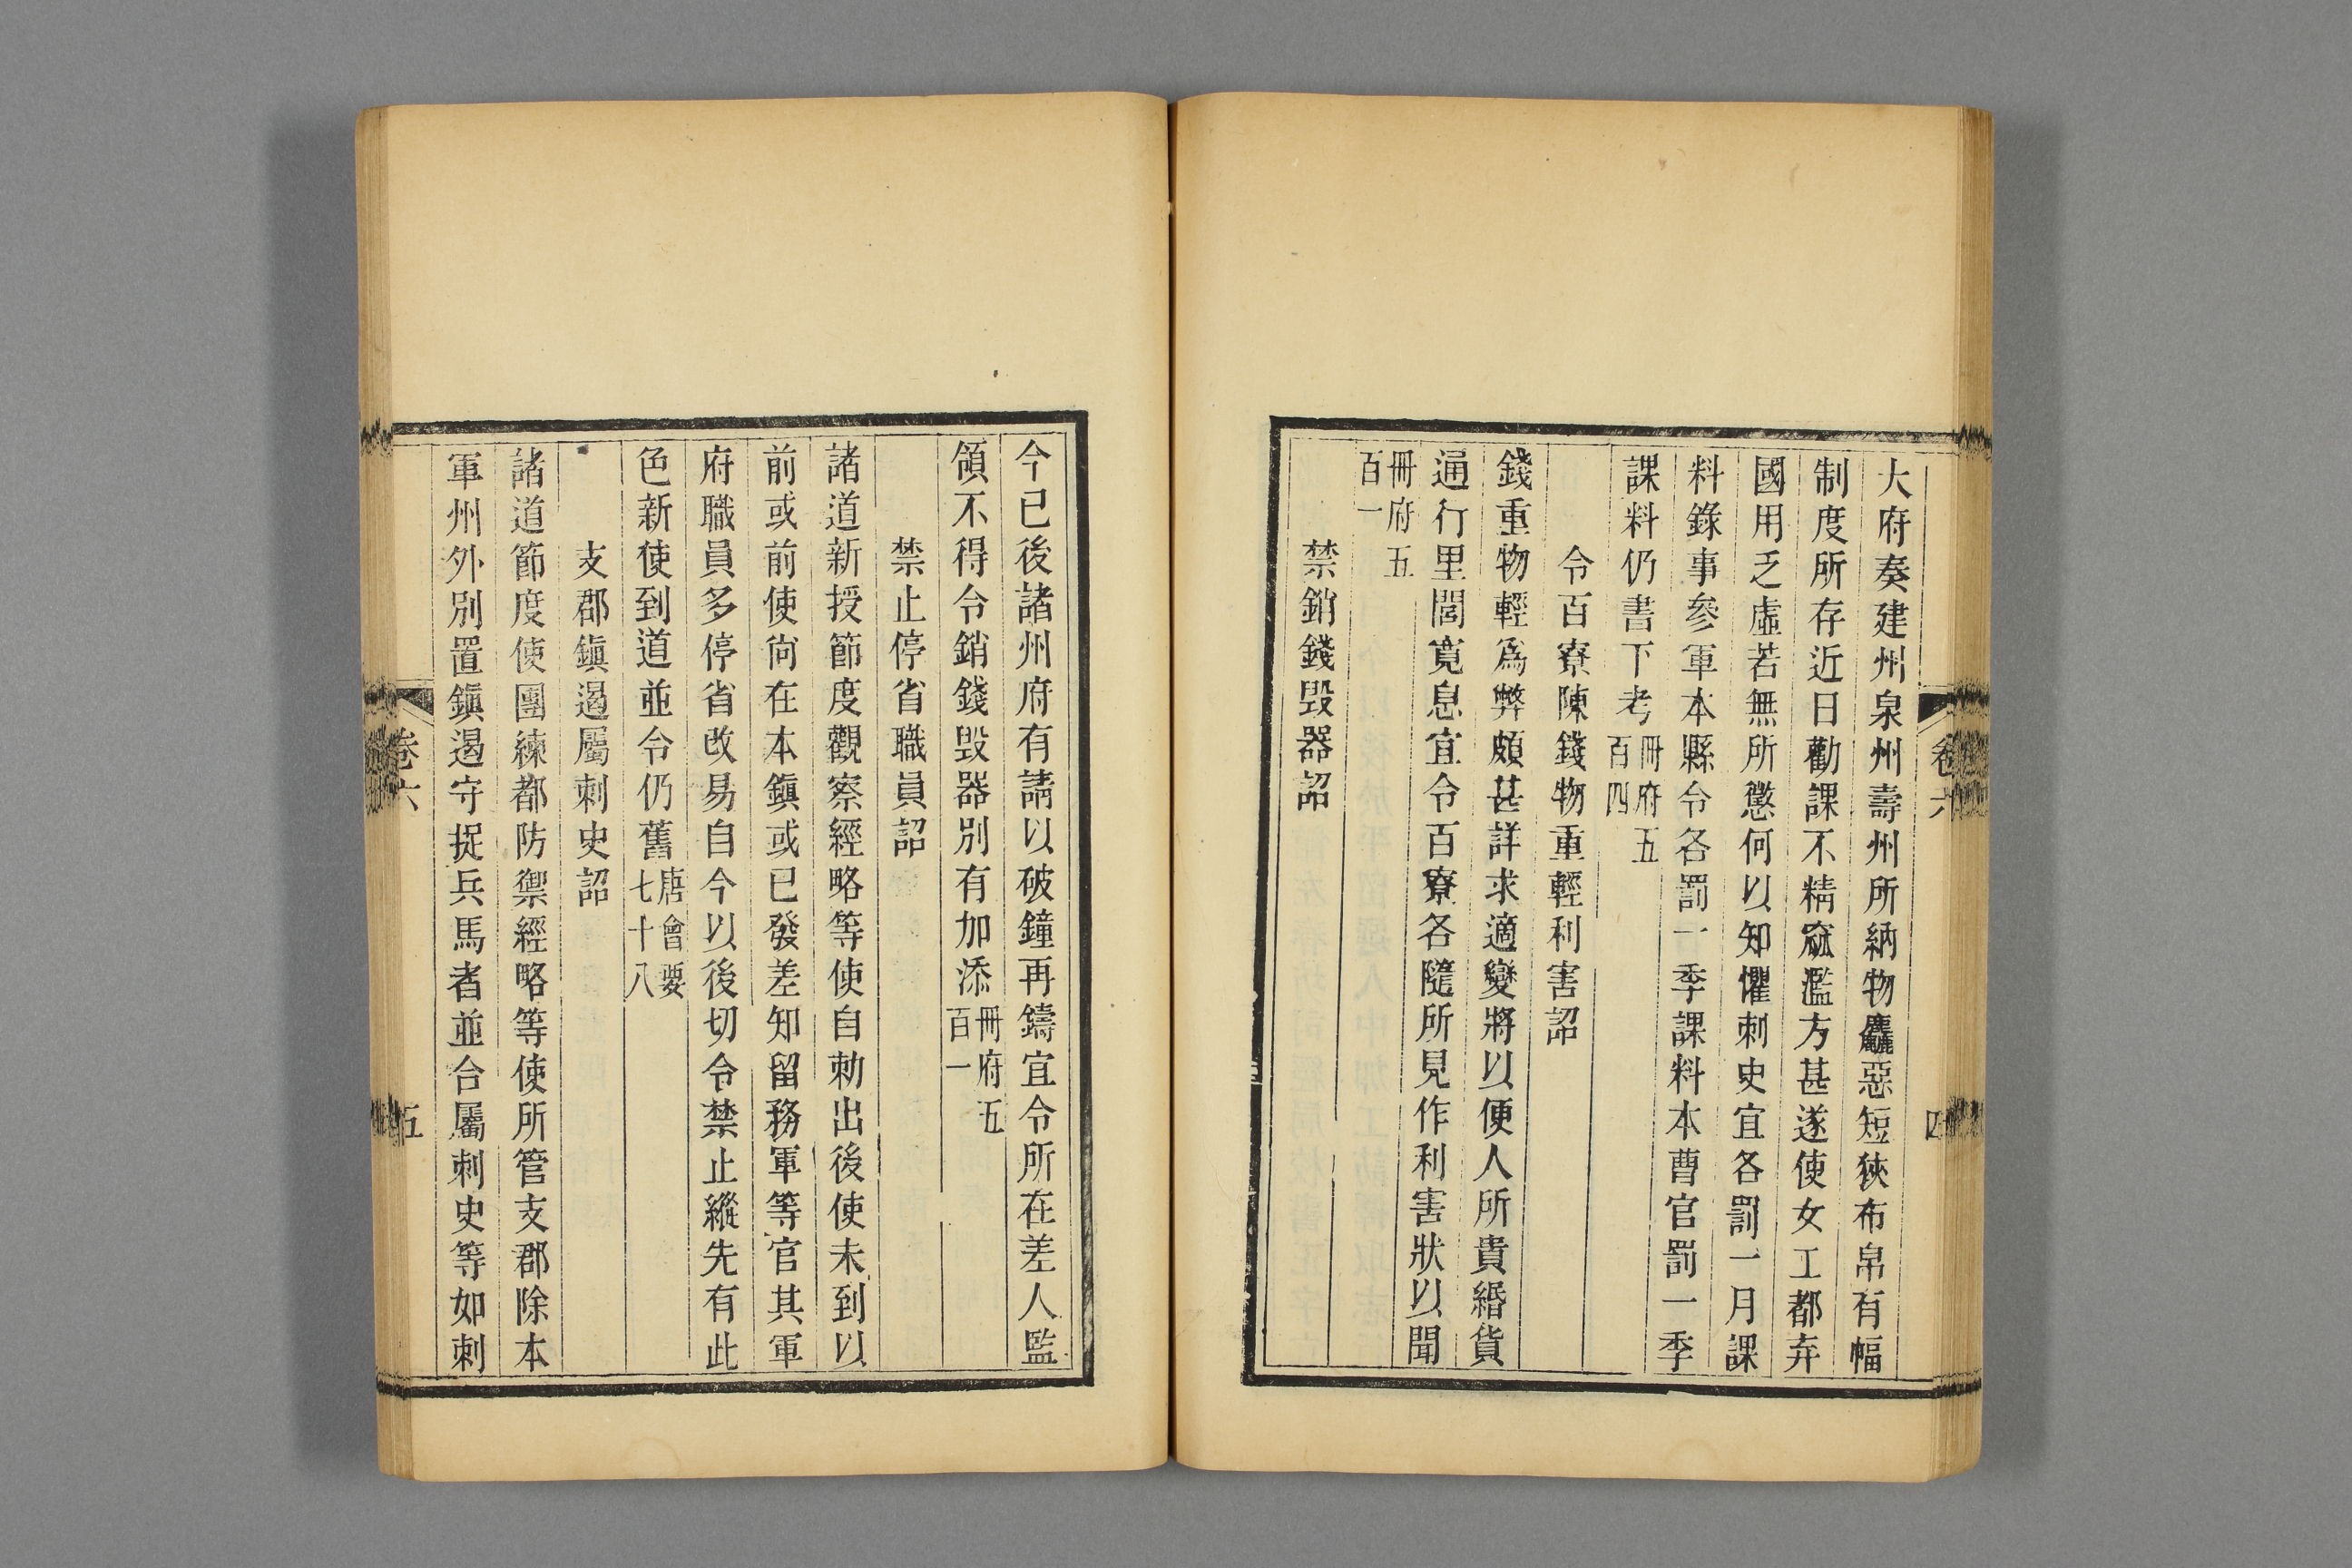 大府奏建州泉州壽州所納物麤惡短狹布帛有幅
制度所存近日勸課不精窳濫方甚遂使女工都弃
國用乏虛若無所懲何以知懼刺史宜各罰一月課
料錄事參軍本縣令各罰一季課料本曹官罰一季
課料仍書下考冊府五百四
令百寮陳錢物重輕利害詔
錢重物輕爲弊頗甚詳求適變將以便人所貴緡貨
通行里閭寛息宜令百寮各隨所見作利害狀以聞
冊府五百一
禁銷錢毀器詔
卷六
四
今已後諸州府有請以破鐘再鑄宜令所在差人監
領不得令銷錢毀器別有加添冊府五百一
禁止停省職員詔
諸道新授節度觀察經略等使自勅出後使未到以
前或前使尙在本鎭或已發差知留務軍等官其軍
府職員多停省改易自今以後切令禁止縱先有此
色新使到道並令仍舊唐會要七十八
支郡鎭遏屬刺史詔
諸道節度使團練都防禦經略等使所管支郡除本
軍州外別置鎭遏守捉兵馬者並合屬刺史等如刺
卷六
五